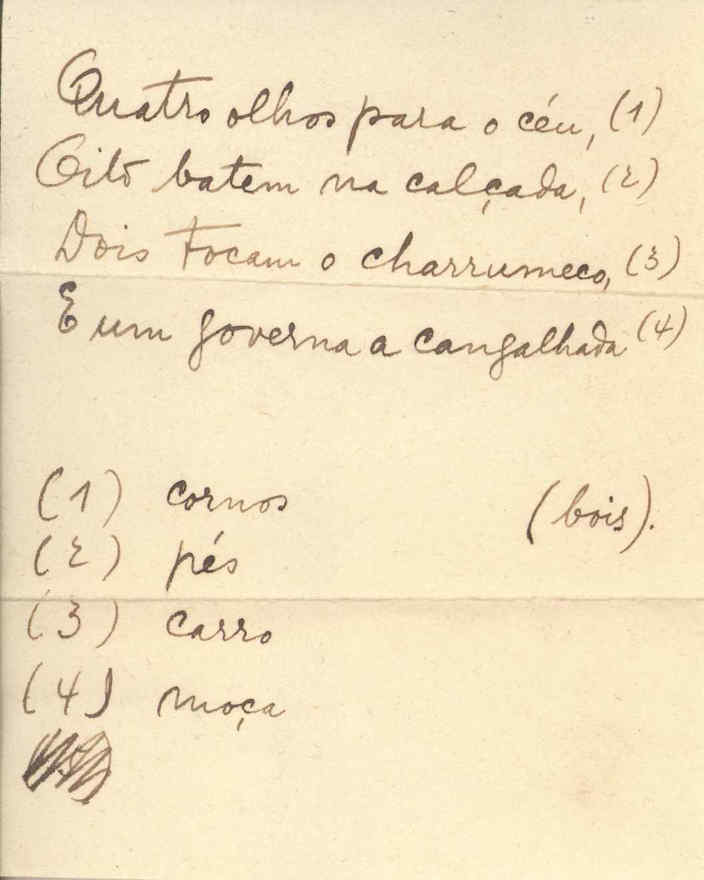 Quatro olhos para o céu, (1)
Oito batem na calçada, (2)
Dois tocam o charrumeco, (3)
E um governa a cangalhada (4)
(1) cornos (bois).
(2) pés
(3) carro
(4) moça